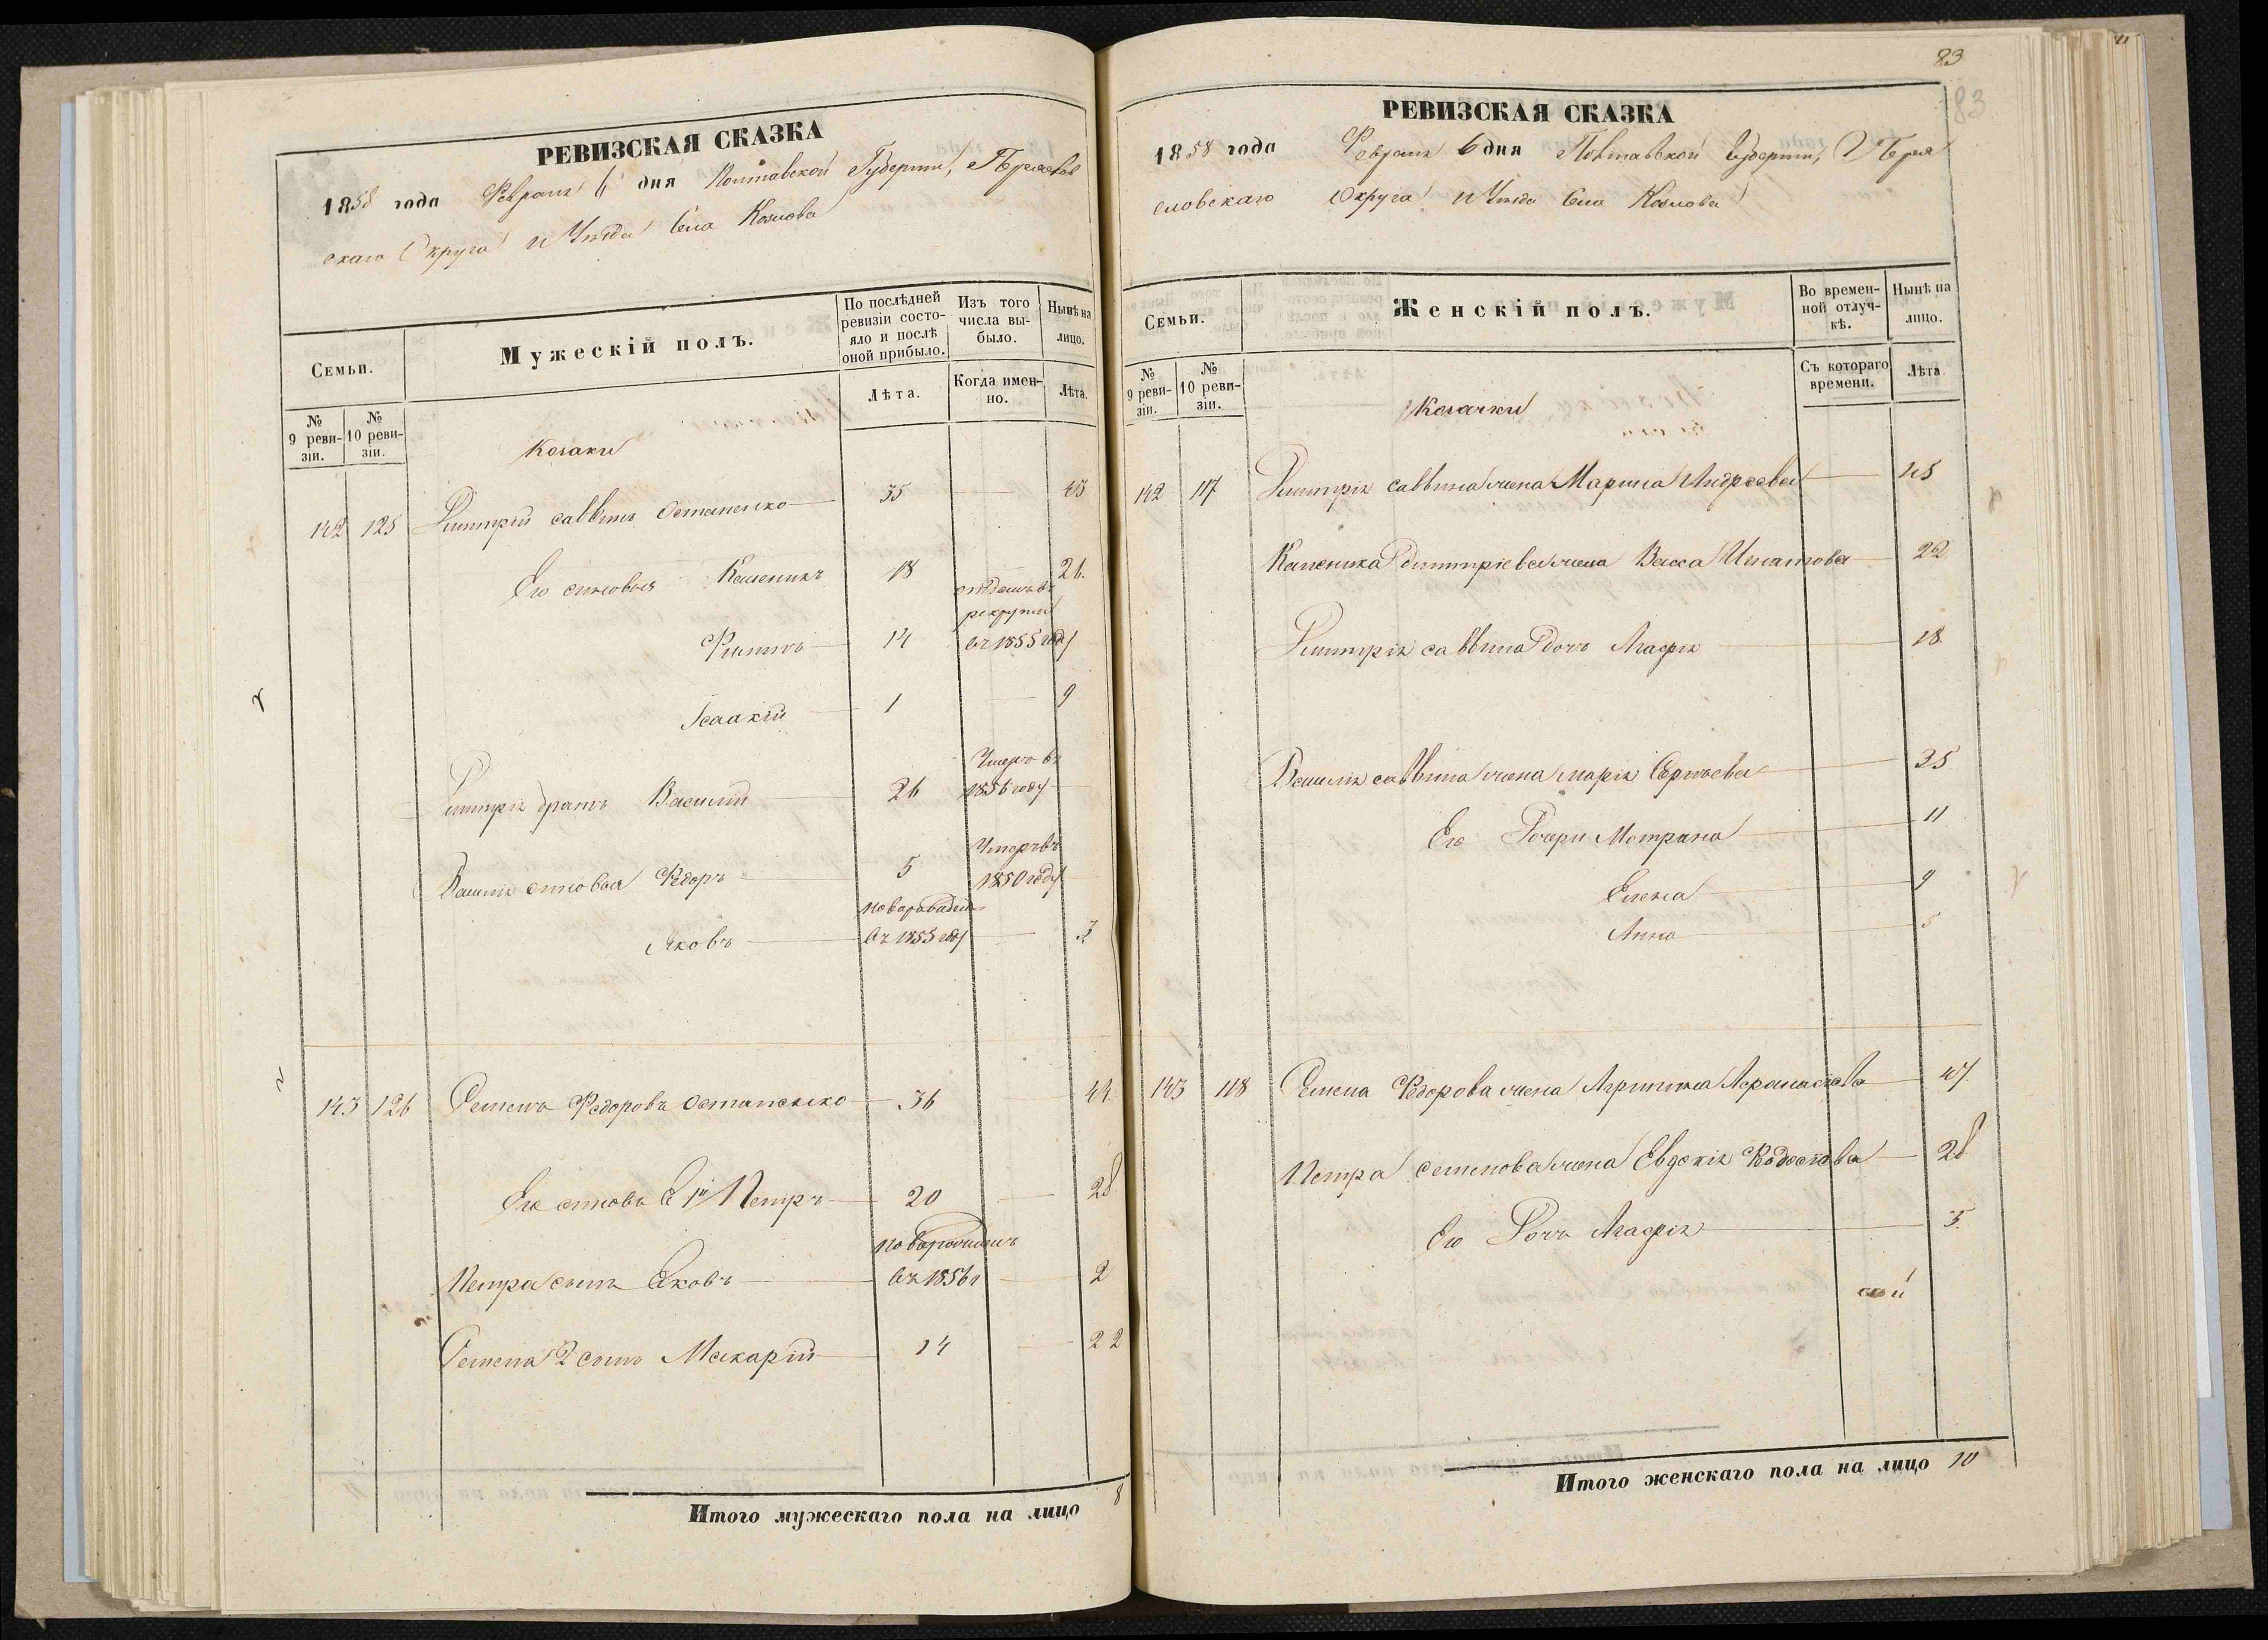 РЕВИЗСКАЯ СКАЗКА
1858 года Февраля 6 дня Полтавской Губернии, Переяслов
скаго Округа и Уезда Села Козлова
Семьи.
Мужескій полъ.
По послѣдней ревизіи состояло и послѣ оной прибыло.
Изъ того числа выбыло.
Нынѣ на лицо.
№ 9 ревизіи.
№ 10 ревизіи.
Лѣта.
Когда именно.
Лѣта.
Козаки
142 125 Дмитрій Саввинъ Остапенко 35 43
Его сыновья Каленикъ 18 26.
Филипъ 14 отданъ въ рекруты въ 1855 году
Ісаакій 1 9
Дмитрія братъ Василій 26 Умеръ въ 1856 году
Василія сыновья Федоръ 5 Умеръ въ 1850 году
Яковъ новорожденъ въ 1855 году 3
143 126 Семенъ Федоровъ Остапенко 36 44.
Его сыновья 1й Петръ 20 28.
Петра сынъ Яковъ новорожденъ въ 1856 г 2
Семена 2 сынъ Макарій 14 22
Итого мужескаго пола на лицо 8
83
83
РЕВИЗСКАЯ СКАЗКА
1858 года Февраля 6 дня Полтавской Губернии, Перея
словскаго Округа и Уезда Села Козлова
Семьи.
Женскій полъ.
Во временной отлучкѣ.
Нынѣ на лицо.
№ 9 ревизіи.
№ 10 ревизіи.
Съ котораго времени.
Лѣта.
Козачки
142 117 Дмитрія Саввина жена Марина Андреева 45
Каленика Дмитріева жена Васса Игнатова 22.
Дмитрія Саввина дочь Агафія 18.
Василія Саввина жена Марія Сергѣева 35
Его Дочери Мотрона 11
Елена 9
Анна 5
143 118 Семена Федорова жена Агрипина Афанасіева 47.
Петра Семенова жена Евдокія 28
Его Дочь Агафія 5.
Итого женскаго пола на лицо 10